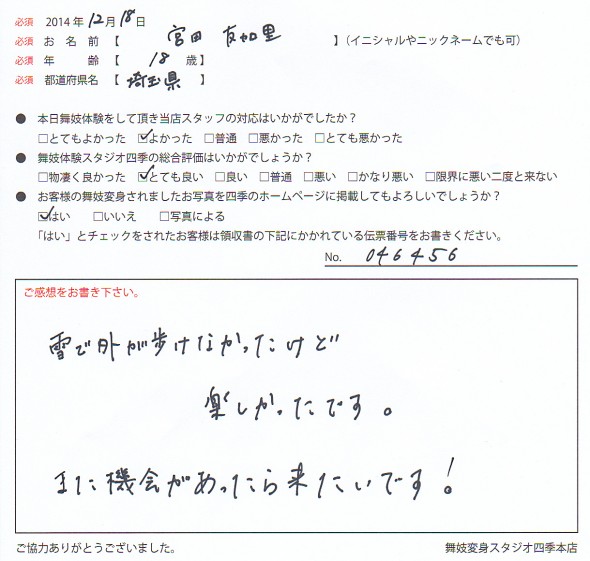 必須 2014年12月18日
必須 お名前【 宮田 友加里 】（イニシャルやニックネームでも可）
必須 年齢【 18 歳】
必須 都道府県名【 埼玉県 】
● 本日舞妓体験をして頂き当店スタッフの対応はいかがでしたか？
□とてもよかった ☑よかった □普通 □悪かった □とても悪かった
● 舞妓体験スタジオ四季の総合評価はいかがでしょうか？
□物凄く良かった ☑とても良い □良い □普通 □悪い □かなり悪い □限界に悪い二度と来ない
● お客様の舞妓変身されましたお写真を四季のホームページに掲載してもよろしいでしょうか？
☑はい □いいえ □写真による
「はい」とチェックをされたお客様は領収書の下記にかかれている伝票番号をお書きください。
No. 046456
ご感想をお書き下さい。
雪で外が歩けなかったけど
楽しかったです。
また機会があったら来たいです！
ご協力ありがとうございました。 舞妓変身スタジオ四季本店